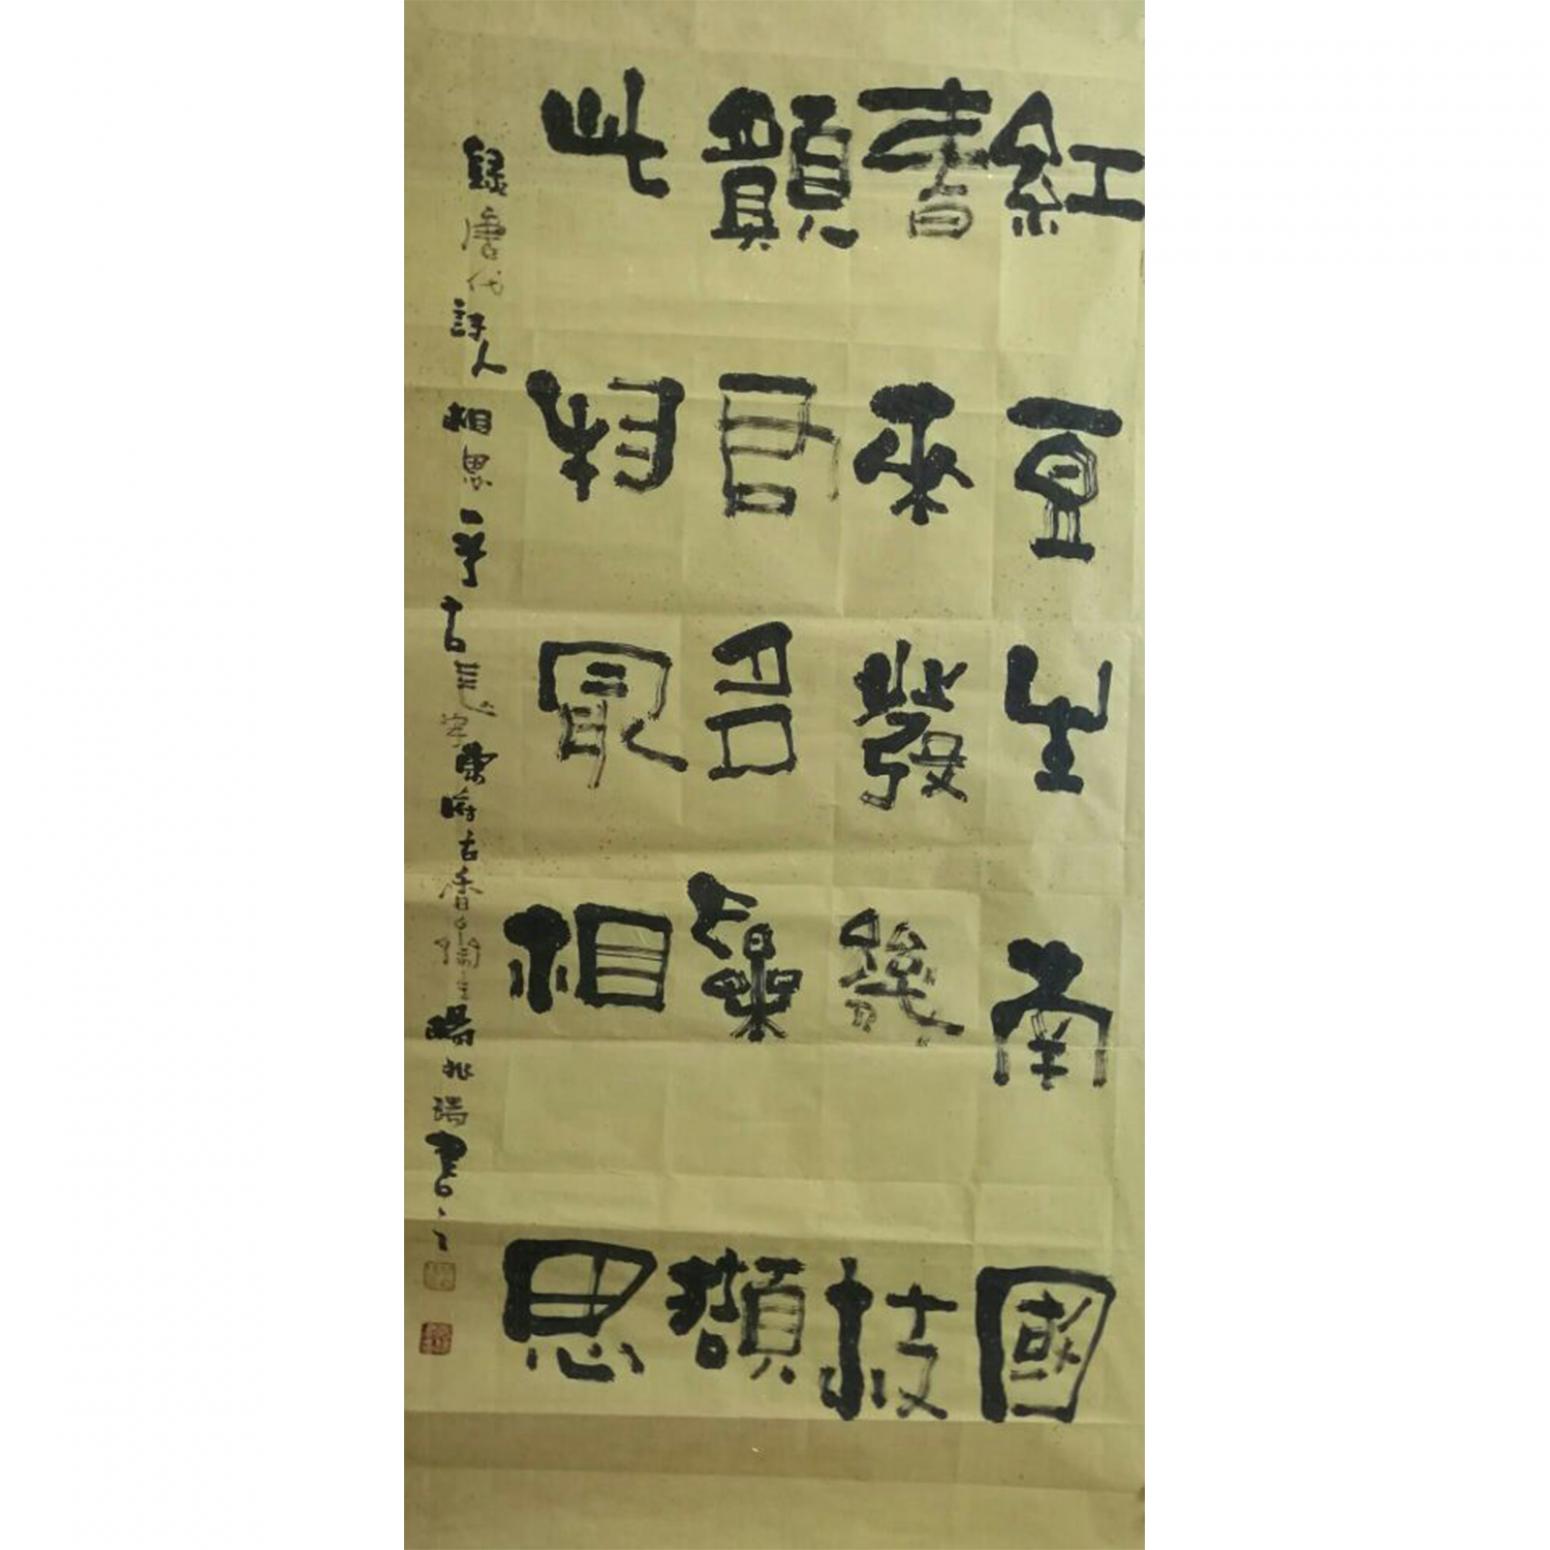 紅豆生南國
春來發幾枝
願君多采擷
此物最相思
録唐代詩人相思一 古 東 古 瑞書